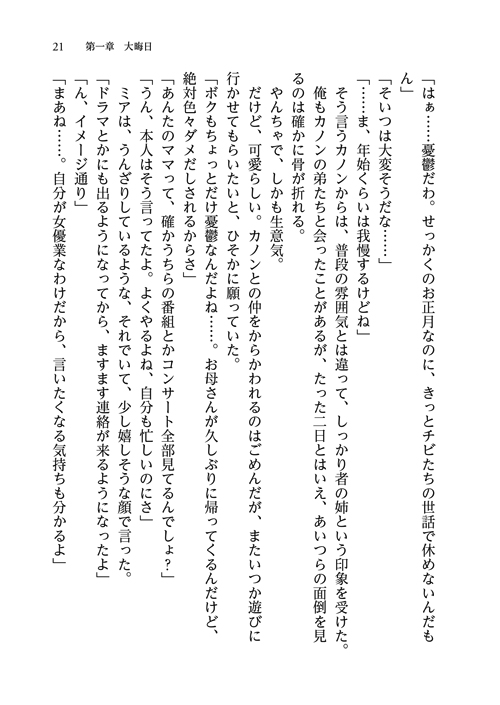 21　第一章　大晦日
「はぁ……憂鬱だわ。せっかくのお正月なのに、きっとチビたちの世話で休めないんだも
ん」
「そいつは大変そうだな……」
「……ま、年始くらいは我慢するけどね」
そう言うカノンからは、普段の雰囲気とは違って、しっかり者の姉という印象を受けた。
俺もカノンの弟たちと会ったことがあるが、たった二日とはいえ、あいつらの面倒を見
るのは確かに骨が折れる。
やんちゃで、しかも生意気。
だけど、可愛らしい。カノンとの仲をからかわれるのはごめんだが、またいつか遊びに
行かせてもらいたいと、ひそかに願っていた。
「ボクもちょっとだけ憂鬱なんだよね……。お母さんが久しぶりに帰ってくるんだけど、
絶対色々ダメだしされるからさ」
「あんたのママって、確かうちらの番組とかコンサート全部見てるんでしょ？」
「うん、本人はそう言ってたよ。よくやるよね、自分も忙しいのにさ」
ミアは、うんざりしているような、それでいて、少し嬉しそうな顔で言った。
「ドラマとかにも出るようになってから、ますます連絡が来るようになったよ」
「ん、イメージ通り」
「まあね……。自分が女優業なわけだから、言いたくなる気持ちも分かるよ」